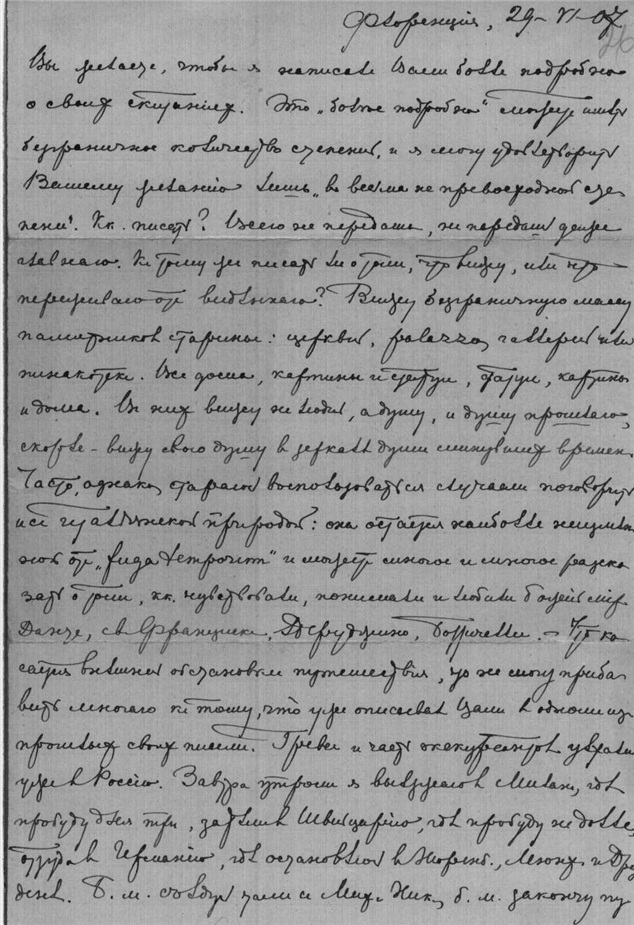 Флоренция, 29–VI–07
26
Вы желаете, чтобы я написалъ Вамъ более подробно
о своих скитаниях. Это „более подробно" может иметь
безграничное количество степеней, и я могу удовлетворить
Вашему желанию лишь „в весьма не превосходной сте
пени". Кк. писать? Всего не передашь, не передашь даже
главнаго. К тому же писать ли о том, что вижу, или что
переживаю от виденнаго? Вижу безграничную массу
памятников старины: церкви, palazzo, галлереи или
пинакотеки. Все дома, картины и статуи, статуи, картины
и дома. В них вижу не людей, а душу, и душу прошлаго,
скорее – вижу свою душу в зеркале души минувших времен.
Часто, однако, стараюсь воспользоваться случаем поговорить
и с итальянской природой: она остается наиболее неизмен
ной от „fuga temporum" и может многое и многое расска
зать о том, кк. чувствовали, понимали и любили божий мир
Данте, св. Франциск, Перуджино, Боттичелли. – Что ка
сается внешней обстановки путешествия, то не могу приба
вить многаго к тому, что уже описывал Вам в одном из
прошлых своих писем. Гревс и часть экскурсантов уехали
уже в Россию. Завтра утром я выезжаю в Милан, где
пробуду дня три, затем в Швейцарию, где пробуду не долее,
оттуда в Германию, где остановлюсь в Нюренб., Мюнх. и Дрез
дене. Б. м. съеду там с Мих. Ник., б. м. закончу пу